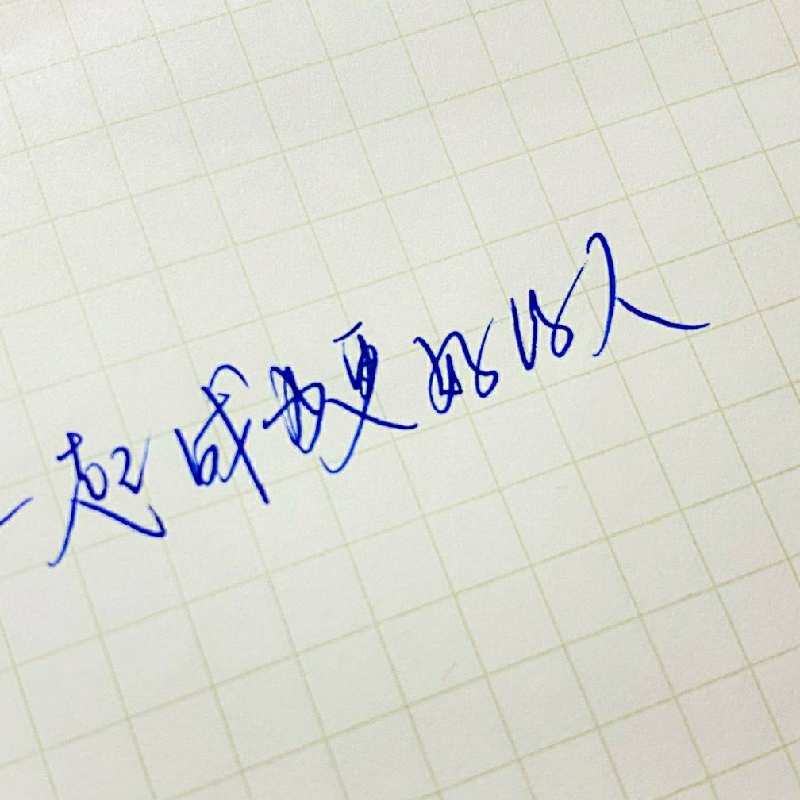 一起成为更好的人